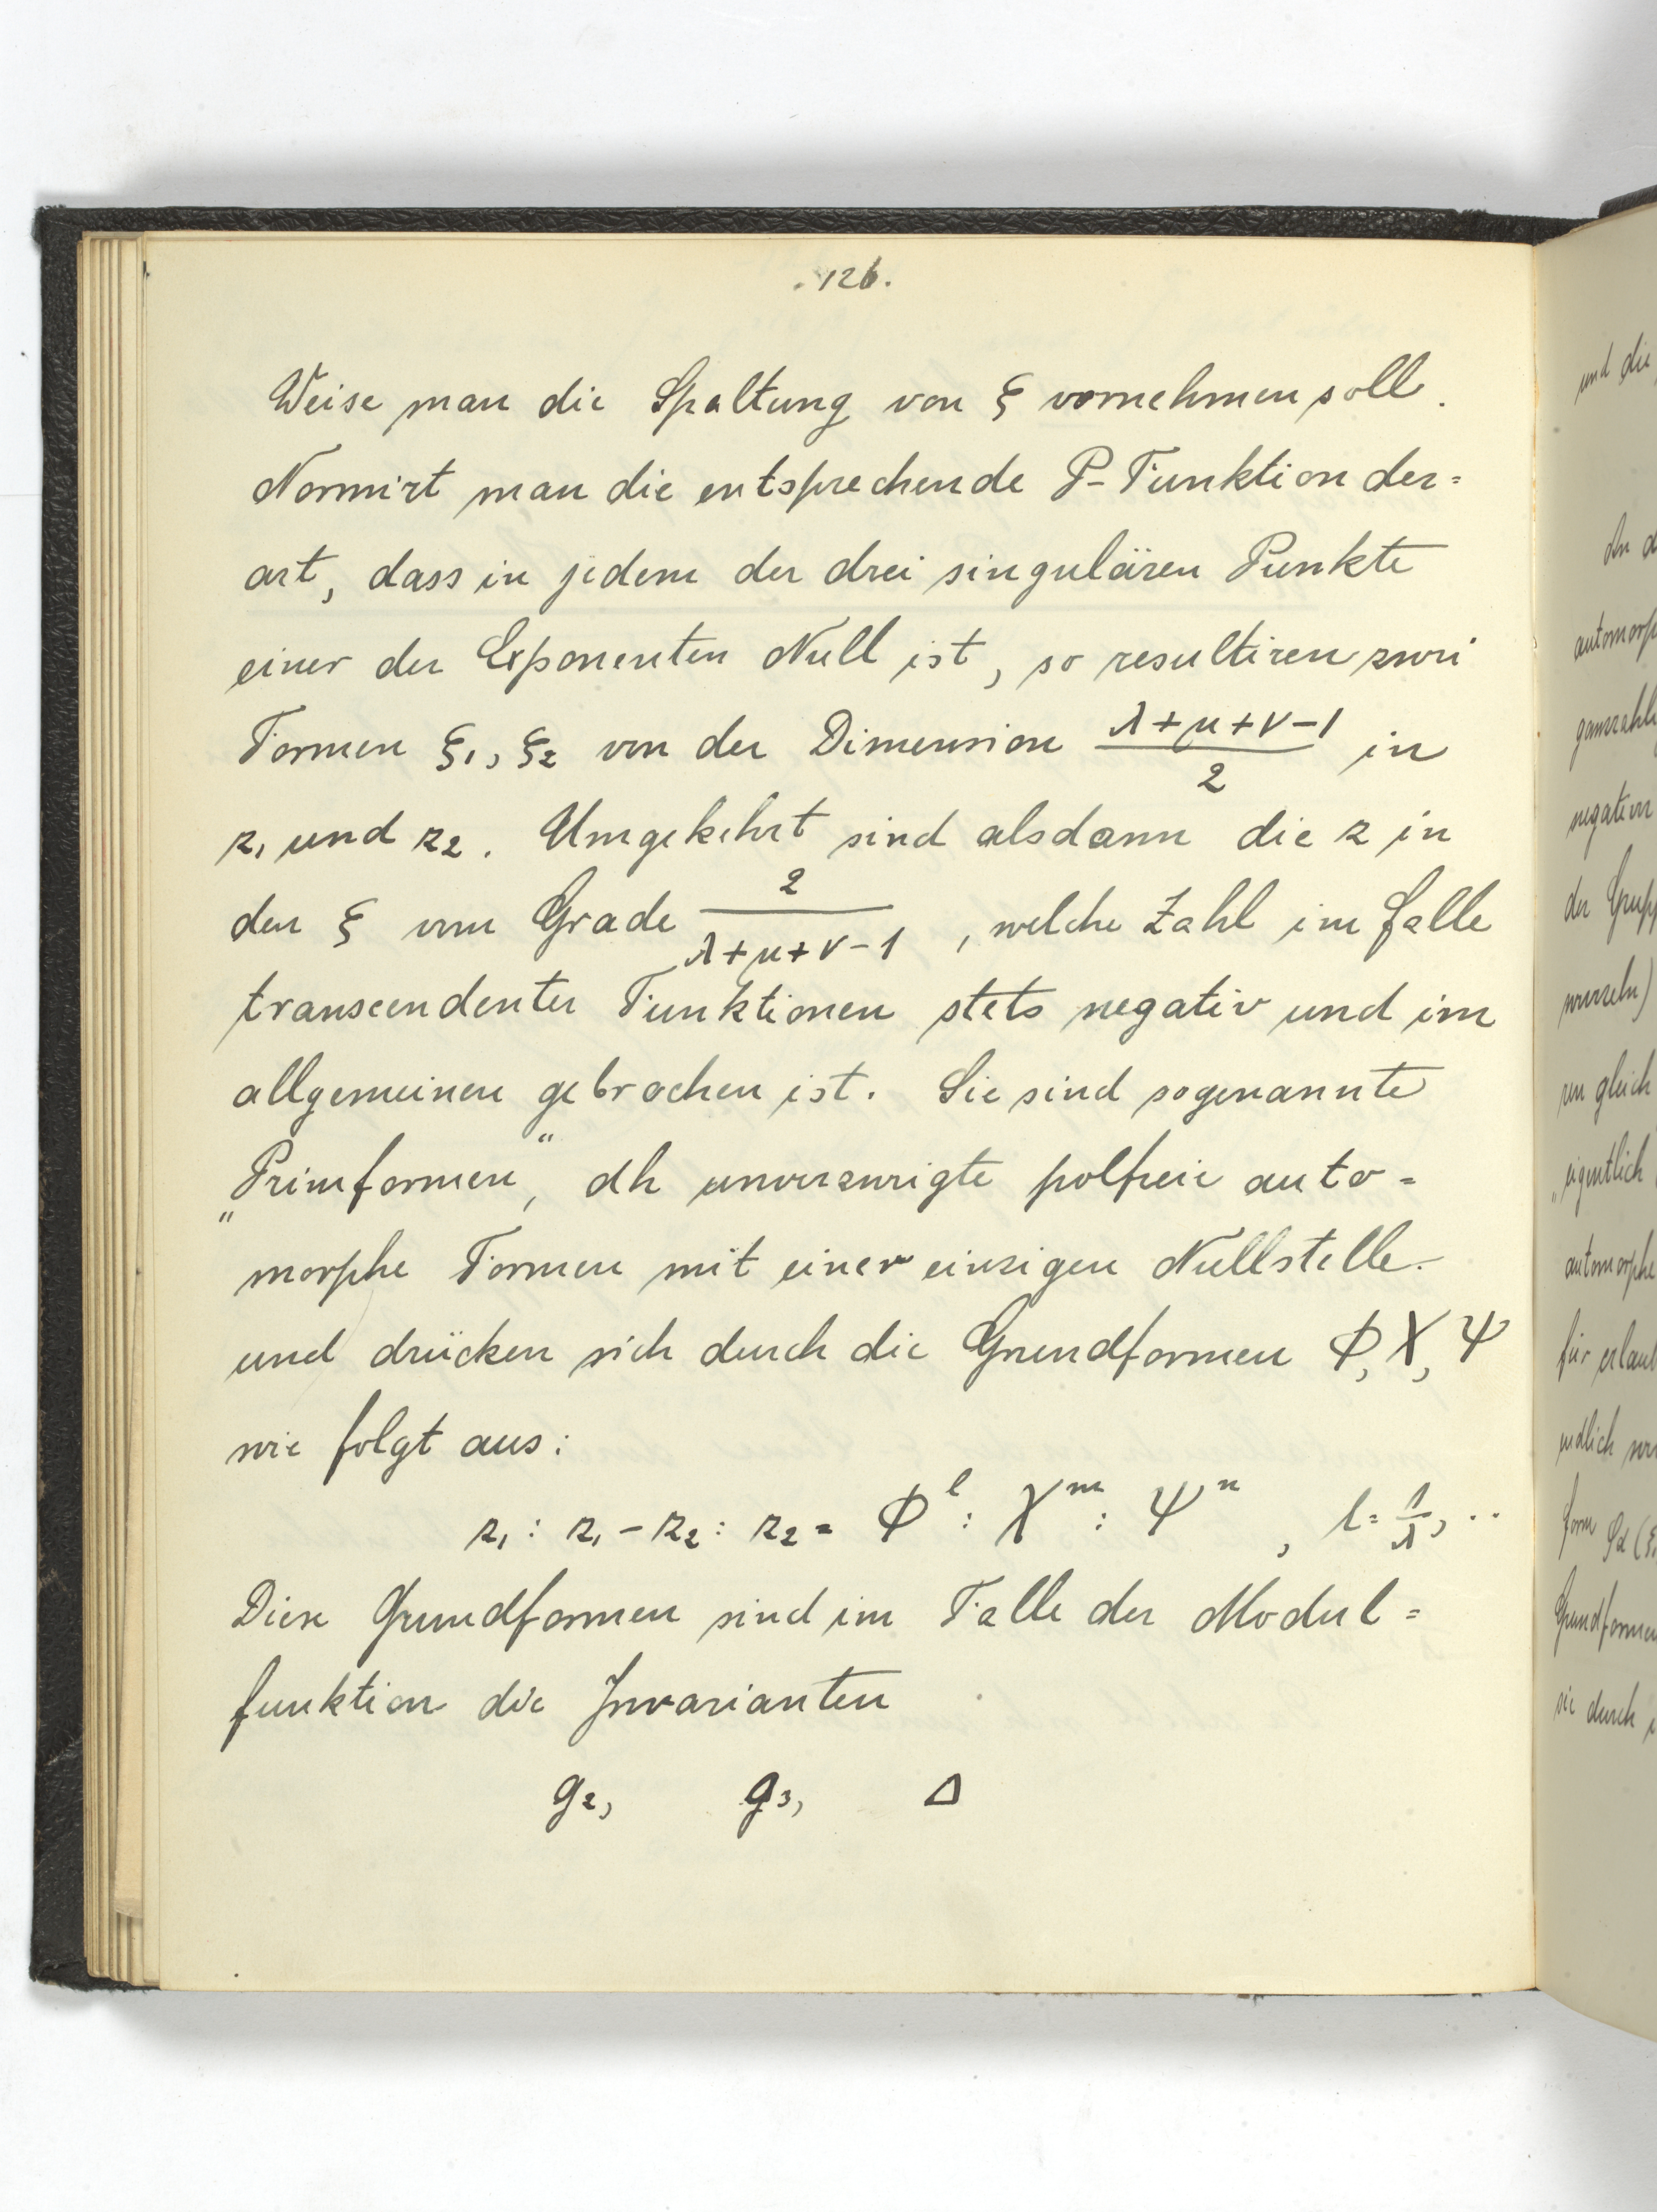 . 126.
Weise man die Spaltung von ξ vornehmen soll.
Normirt man die entsprechende P-Funktion der=
art, dass in jedem der drei singulären Punkte
einer der Exponenten Null ist, so resultiren zwei
Formen ξ₁, ξ₂ von der Dimension (λ+μ+ν−1)/2 in
z₁ und z₂. Umgekehrt sind alsdann die z in
den ξ vom Grade 2/(λ+μ+ν−1), welche Zahl im Falle
transcendenter Funktionen stets negativ und im
allgemeinen gebrochen ist. Sie sind sogenannte
„Primformen“, dh unverzweigte polfreie auto=
morphe Formen mit einer einzigen Nullstelle.
und drücken sich durch die Grundformen Φ, Χ, Ψ
wie folgt aus:
z₁ : z₁ − z₂ : z₂ = Φˡ : Χᵐ : Ψⁿ , l = 1/λ, ..
Diese Grundformen sind im Falle der Modul=
funktion die Invarianten
g₂, g₃, Δ
und die
An d
automorp
ganzzahli
negativen
der Grupp
wurzeln)
ren gleich
„eigentlich
automorphe
für erlaub
endlich
form φα(ξ
Grundformen
sie durch